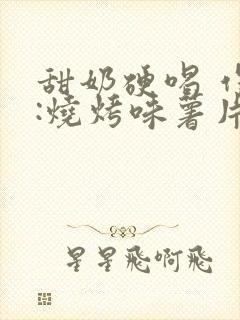 甜奶硬唱
:燒烤味薯片
星星飛啊飛